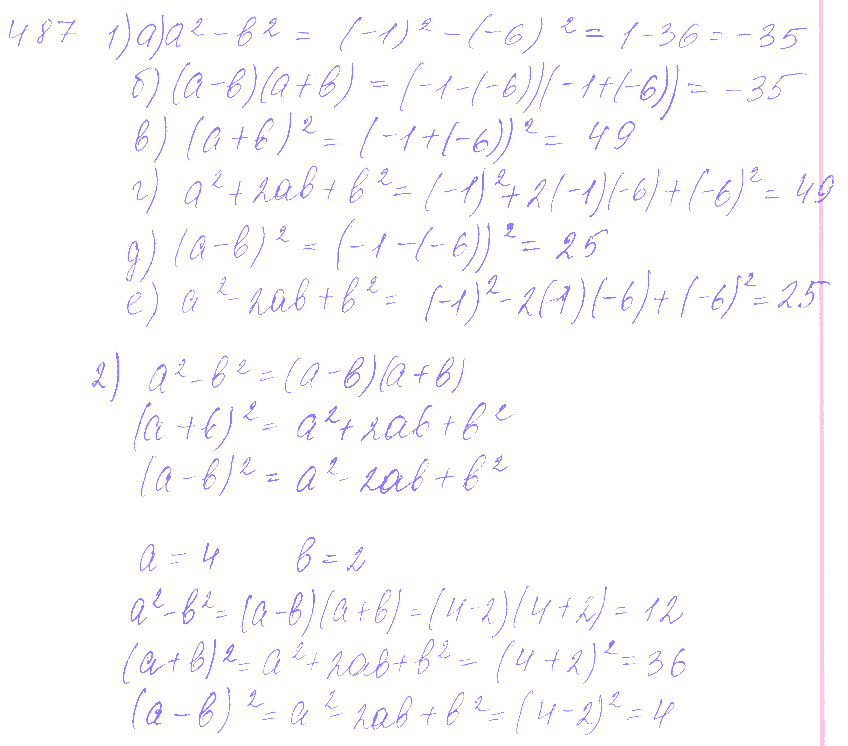 487 1) а) a² - b² = (-1)² - (-6)² = 1 - 36 = -35
б) (a-b)(a+b) = (-1-(-6))(-1+(-6)) = -35
в) (a+b)² = (-1+(-6))² = 49
г) a² + 2ab + b² = (-1)² + 2(-1)(-6) + (-6)² = 49
д) (a-b)² = (-1-(-6))² = 25
е) a² - 2ab + b² = (-1)² - 2(-1)(-6) + (-6)² = 25
2) a² - b² = (a-b)(a+b)
(a+b)² = a² + 2ab + b²
(a-b)² = a² - 2ab + b²
a = 4 b = 2
a² - b² = (a-b)(a+b) = (4-2)(4+2) = 12
(a+b)² = a² + 2ab + b² = (4+2)² = 36
(a-b)² = a² - 2ab + b² = (4-2)² = 4